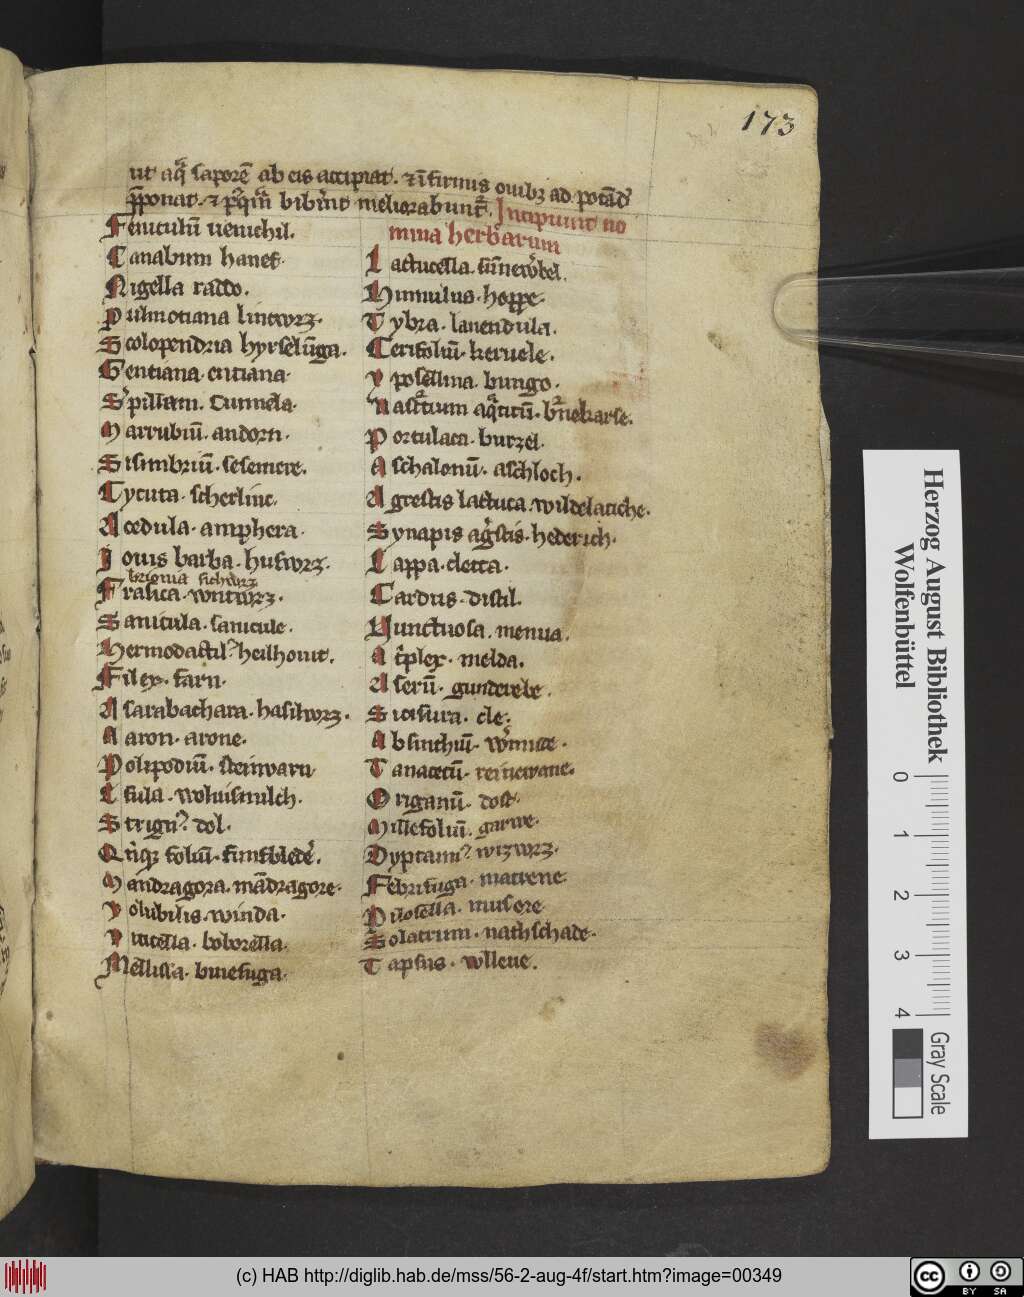 173
ut aq̄ saporē ab eis accipiat. ⁊ īfirmis ouibȝ ad potādū
p̄ponat. ⁊ bibint meliorabunt̄. Incipiunt no
mina herbarum
Feniculū uenichil.
Canabum hanef.
Nigella raddo.
Pulmonana lincwrz.
Scolopendria hyrselūga.
Gentiana. enciana.
Spillam. Cunnela.
Marrubiū. andorn.
Sisimbriū. sesemere.
Cycuta. scherlinc.
Acedula. amphera.
Iouis barba. huswrz.
brionia sichwrz
Frasica. wituurz.
Sanicula. sanicule.
Hermodactil' heilhouit.
Filex. farn.
Asarabachara. hasilwrz.
Aaron. arone.
Polipodiū. steinvarn
Esula. woluismilch.
Strign' dol.
Qnqȝ foliū. finfbledē.
Mandragora. mādragore.
Volubilis. winda.
Viticella. boborella.
Mellissa. binesuga.
Lactucella. sūnewbel.
Humulus. hoppe.
Tybra. lauendula.
Cerifoliū. keruele.
Yposellina. bungo.
Nasctium aqticū. bnnekarse.
Portulaca. burzel.
Aschalonū. aschloch.
Agrestis lactuca. wildelatiche.
Synapis agstis. hederich.
Lappa. cletta.
Cardus. distil.
Yunctuosa. menua.
Atplex. melda.
Aserū. gunderebe.
Sicisura. cle.
Absinthiū. wrmute.
Tanacetū. reinevane.
Origanū. dost.
Millefoliū. garwe.
Dyptamn' wizwrz.
Febrifuga. matrene.
Pilosella. musore
Solatrum. nathschade.
Tapsus. wlleue.
Herzog August Bibliothek
Wolfenbüttel
0 1 2 3 4
Gray Scale
(c) HAB http://diglib.hab.de/mss/56-2-aug-4f/start.htm?image=00349
cc BY SA